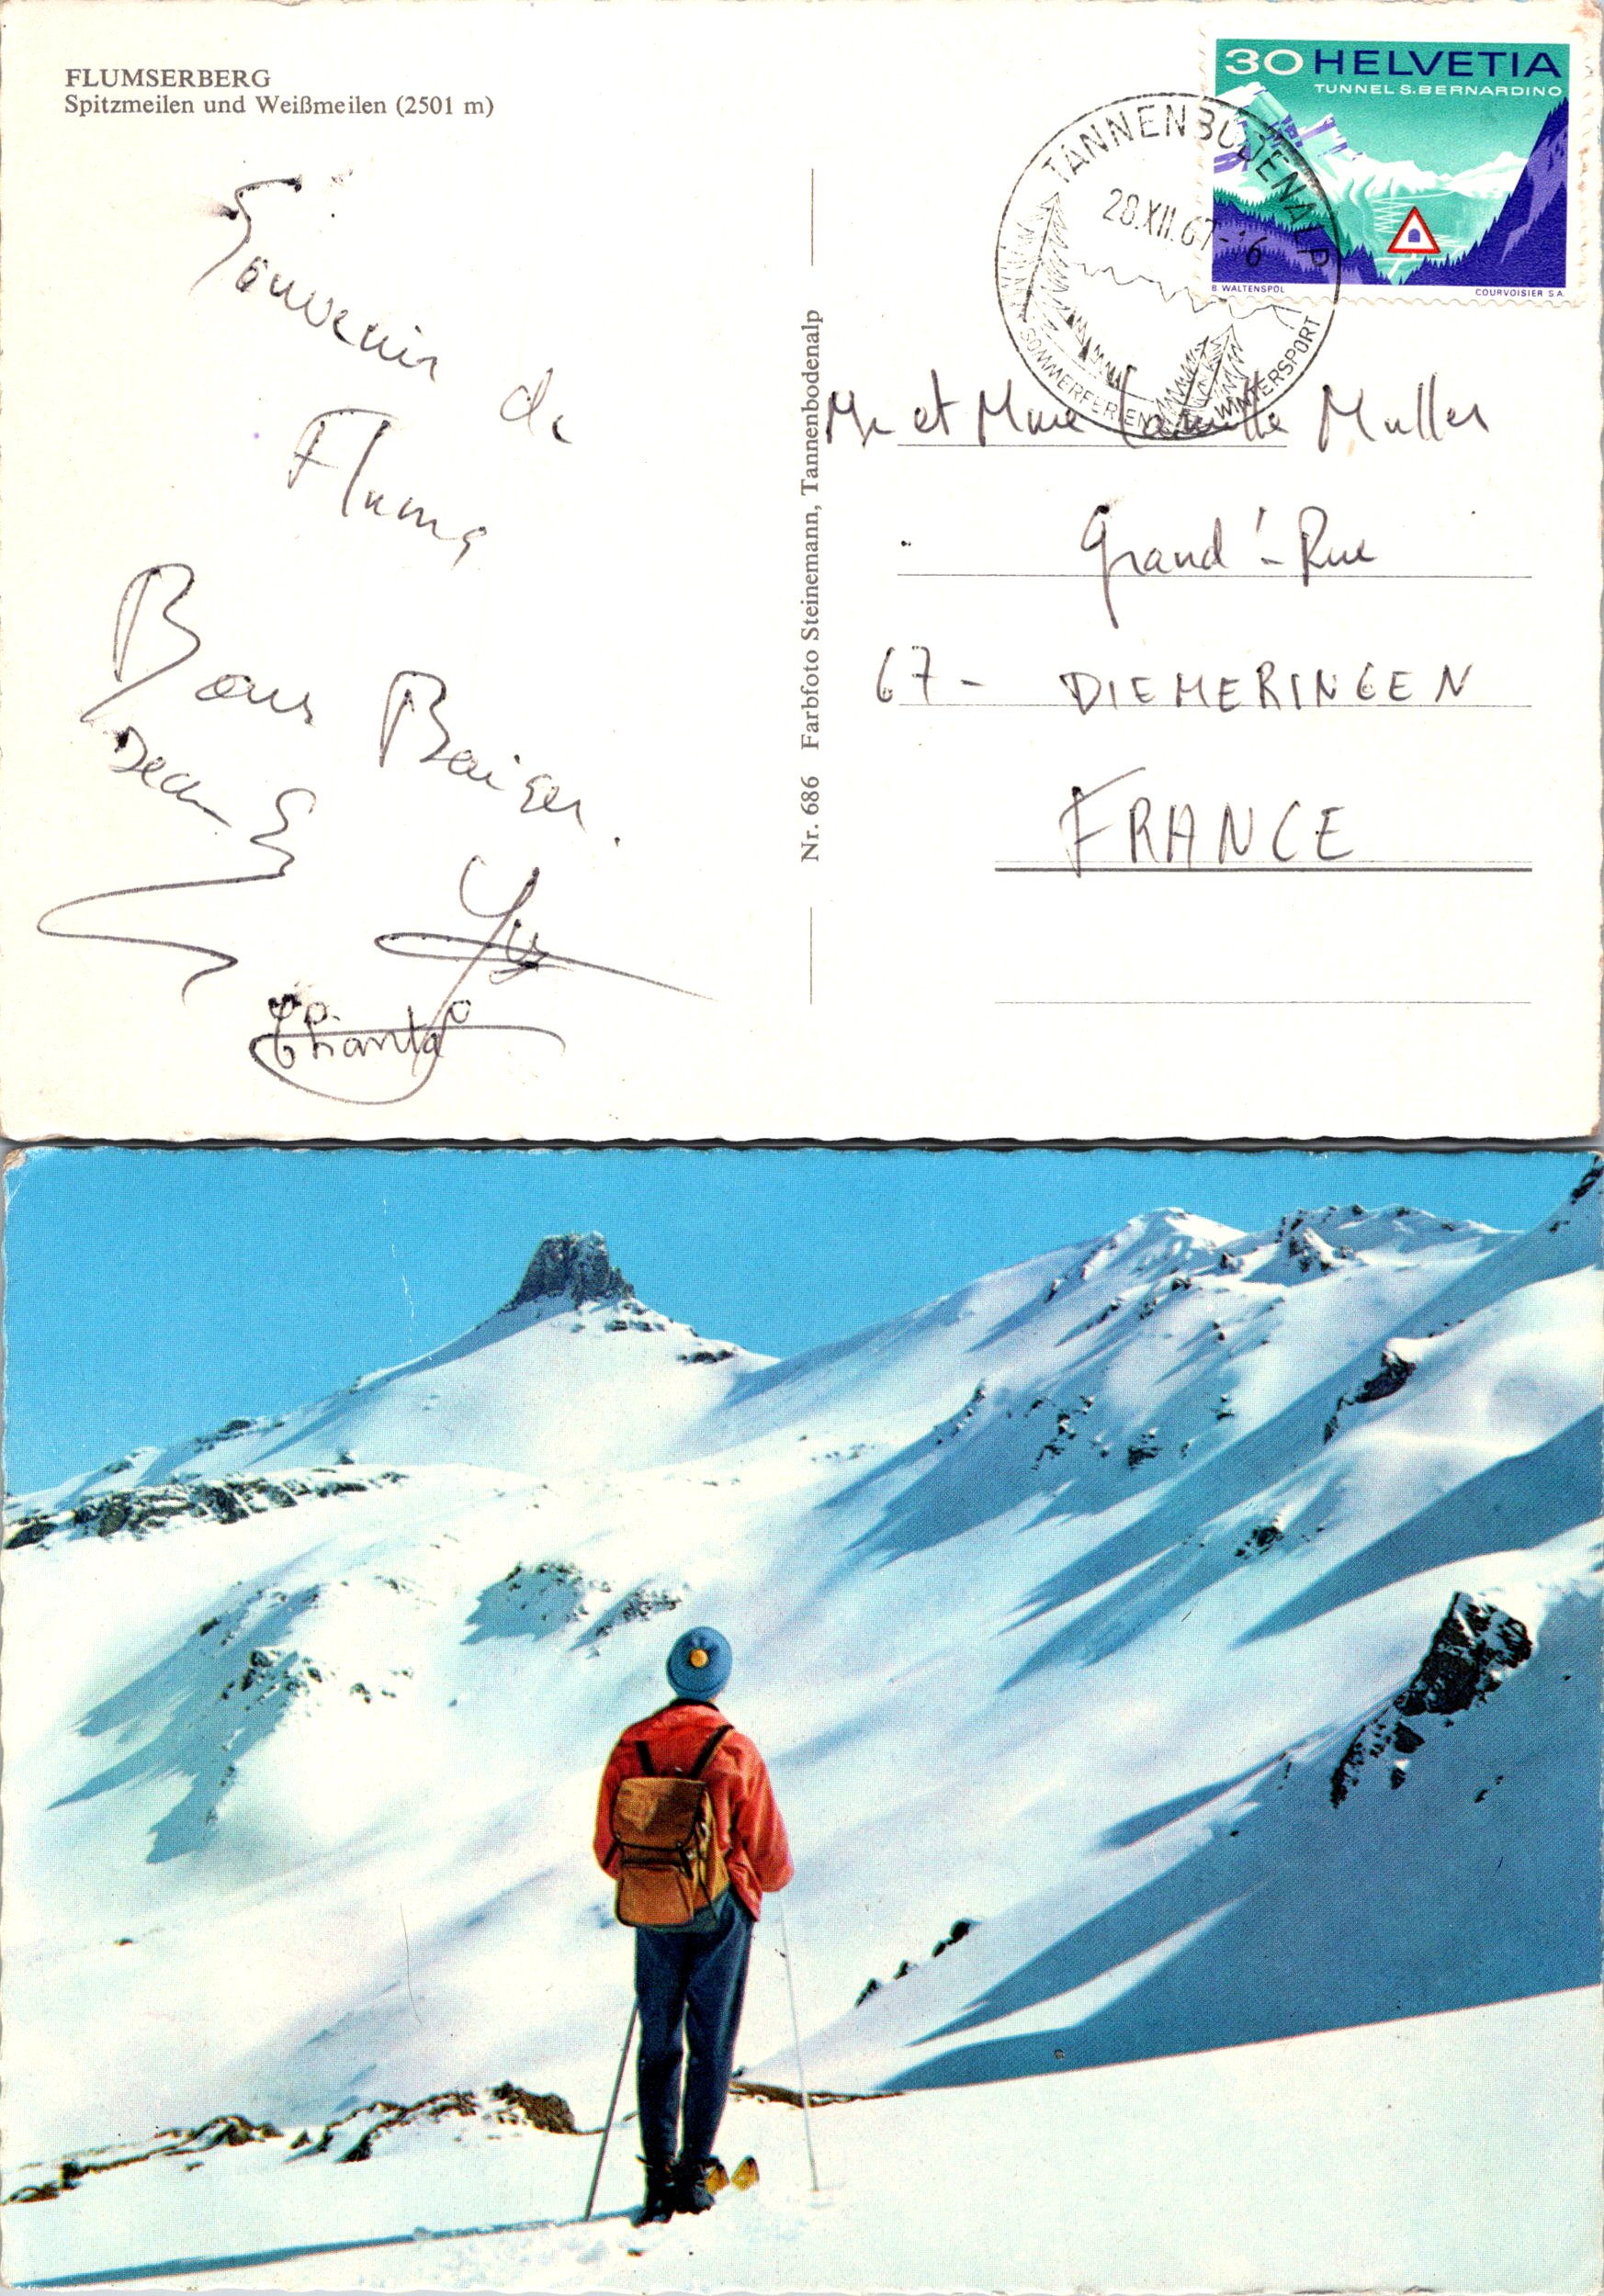 FLUMSERBERG
Spitzmeilen und Weißmeilen (2501 m)
30 HELVETIA
TUNNEL S. BERNARDINO
B. WALTENSPÜL
COURVOISIER S.A.
TANNENBODENALP
28.XII.67-16
SOMMERFERIEN
WINTERSPORT
Souvenir de
Flums
Bons Baiser.
Jean
Chantal
Nr. 686 Farbfoto Steinemann, Tannenbodenalp
Mr et Mme Camille Muller
Grand'-Rue
67- DIEMERINGEN
FRANCE